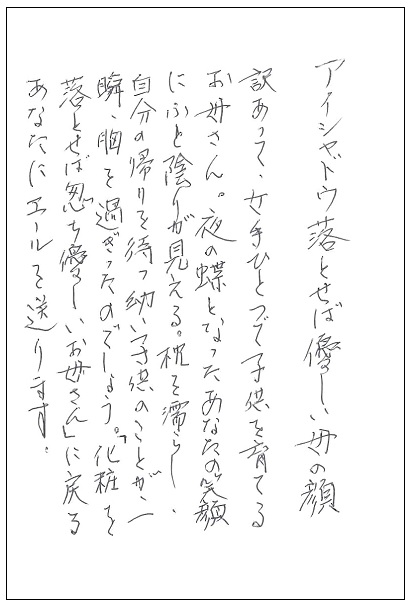 アイシャドウ落とせば優しい母の顔
訳あって、女手ひとつで子供を育てる
お母さん。夜の蝶となったあなたの笑顔
にふと陰りが見える。枕を濡らし、
自分の帰りを待つ幼い子供のことが、一
瞬、胸を過ぎったのでしょう。「化粧を
落とせば忽ち優しいお母さん」に戻る
あなたにエールを送ります。